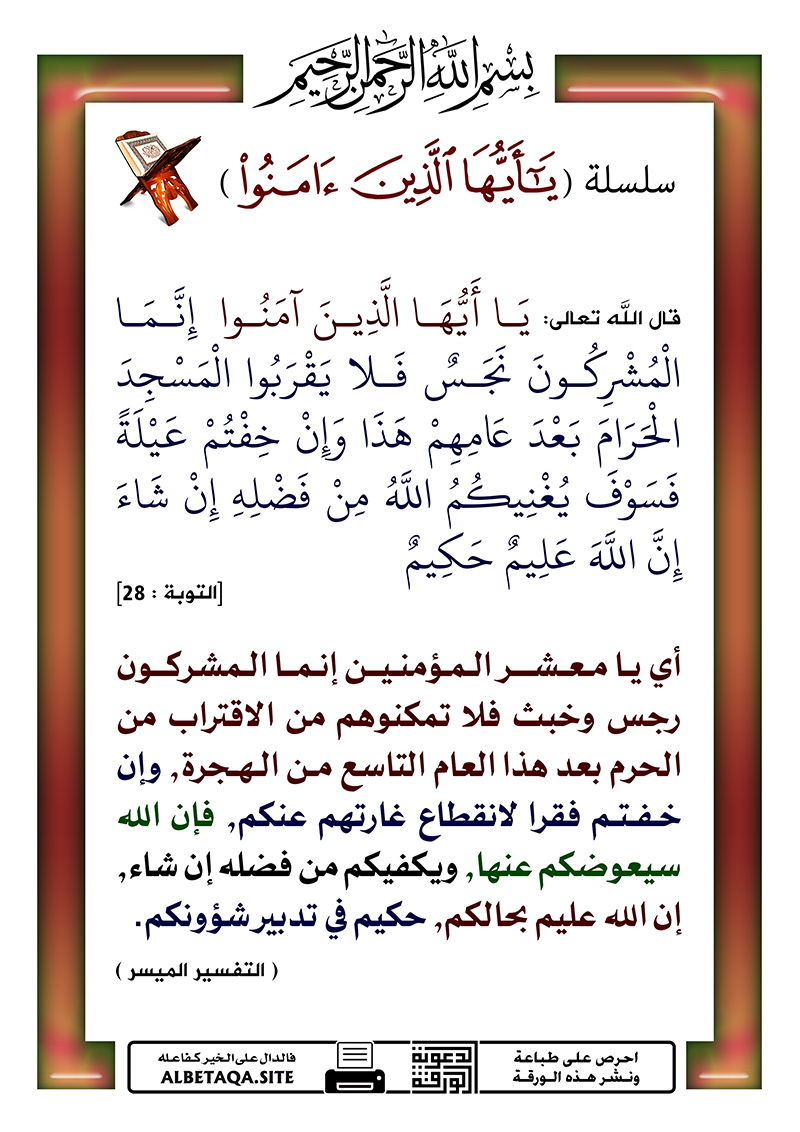 بِسْمِ اللَّهِ الرَّحْمَنِ الرَّحِيمِ
سلسلة ( يَـٰٓأَيُّهَا ٱلَّذِينَ ءَامَنُوا۟ )
قال الله تعالى: يَا أَيُّهَا الَّذِينَ آمَنُوا إِنَّمَا
الْمُشْرِكُونَ نَجَسٌ فَلا يَقْرَبُوا الْمَسْجِدَ
الْحَرَامَ بَعْدَ عَامِهِمْ هَذَا وَإِنْ خِفْتُمْ عَيْلَةً
فَسَوْفَ يُغْنِيكُمُ اللَّهُ مِنْ فَضْلِهِ إِنْ شَاءَ
إِنَّ اللَّهَ عَلِيمٌ حَكِيمٌ
[التوبة : 28]
أي يا معشر المؤمنين إنما المشركون
رجس وخبث فلا تمكنوهم من الاقتراب من
الحرم بعد هذا العام التاسع من الهجرة, وإن
خفتم فقرا لانقطاع غارتهم عنكم, فإن الله
سيعوضكم عنها, ويكفيكم من فضله إن شاء,
إن الله عليم بحالكم, حكيم في تدبير شؤونكم.
( التفسير الميسر )
احرص على طباعة
ونشر هذه الورقة
الورقة
الدعوية
فالدال على الخير كفاعله
ALBETAQA.SITE